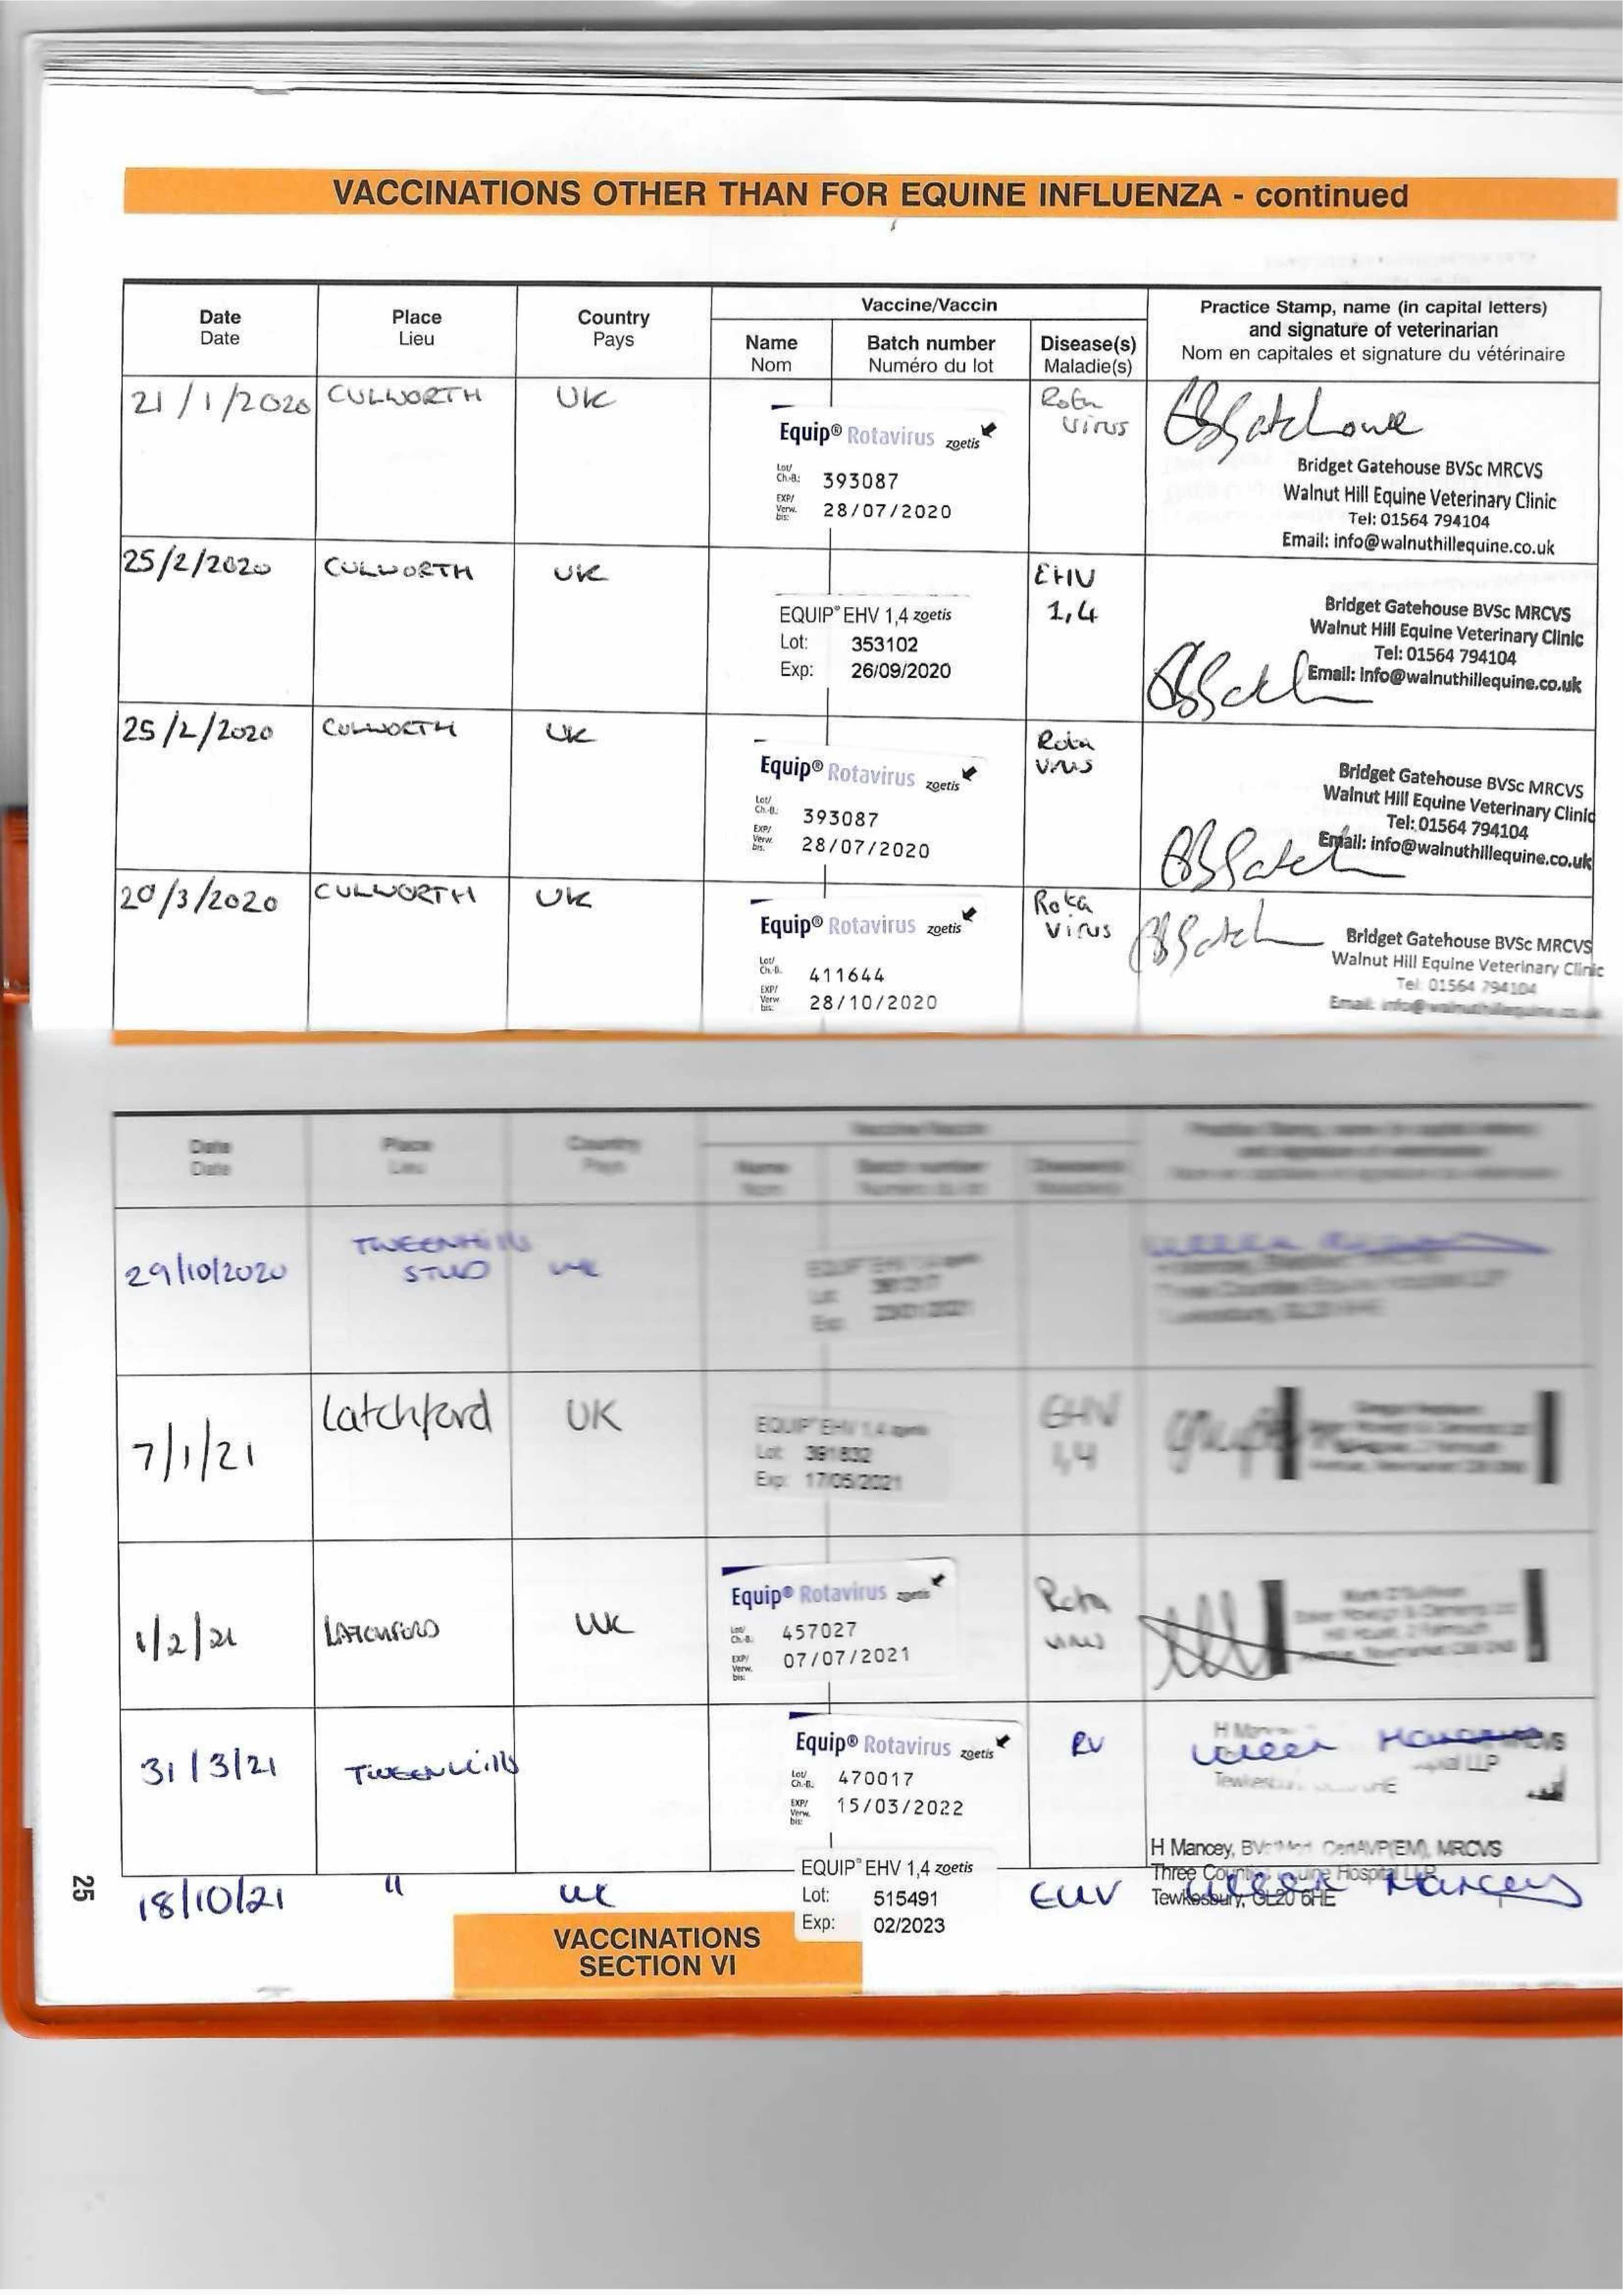 VACCINATIONS OTHER THAN FOR EQUINE INFLUENZA - continued
Date
Date
Place
Lieu
Country
Pays
Vaccine/Vaccin
Name
Nom
Batch number
Numéro du lot
Disease(s)
Maladie(s)
Practice Stamp, name (in capital letters)
and signature of veterinarian
Nom en capitales et signature du vétérinaire
21/1/2020 CULWORTH UK
Equip® Rotavirus zoetis
Lot/
Ch.-B.: 393087
EXP/
Verw.
bis: 28/07/2020
Rota
Virus
Bridget Gatehouse BVSc MRCVS
Walnut Hill Equine Veterinary Clinic
Tel: 01564 794104
Email: info@walnuthillequine.co.uk
25/2/2020 CULWORTH UK
EQUIP® EHV 1,4 zoetis
Lot: 353102
Exp: 26/09/2020
EHV
1,4
Bridget Gatehouse BVSc MRCVS
Walnut Hill Equine Veterinary Clinic
Tel: 01564 794104
Email: info@walnuthillequine.co.uk
25/2/2020 CULWORTH UK
Equip® Rotavirus zoetis
Lot/
Ch.-B.: 393087
EXP/
Verw.
bis: 28/07/2020
Rota
Virus
Bridget Gatehouse BVSc MRCVS
Walnut Hill Equine Veterinary Clinic
Tel: 01564 794104
Email: info@walnuthillequine.co.uk
20/3/2020 CULWORTH UK
Equip® Rotavirus zoetis
Lot/
Ch.-B. 411644
EXP/
Verw
bis: 28/10/2020
Rota
Virus
Bridget Gatehouse BVSc MRCVS
Walnut Hill Equine Veterinary Clinic
Tel: 01564 794104
Email: info@walnuthillequine.co.uk
Date
Date
Place
Lieu
Country
Pays
Vaccine/Vaccin
Name
Nom
Batch number
Numéro du lot
Disease(s)
Maladie(s)
29/10/2020 TWEENHILLS
STUD UK
EQUIP® EHV 1,4 zoetis
Lot:
Exp:
7/1/21 Latchford UK
EQUIP® EHV 1,4 zoetis
Lot: 391832
Exp: 17/05/2021
EHV
1,4
1/2/21 LATCHFORD UK
Equip® Rotavirus zoetis
Lot/
Ch.-B. 457027
EXP/
Verw.
bis: 07/07/2021
Rota
virus
31/3/21 TWEENHills
Equip® Rotavirus zoetis
Lot/
Ch.-B. 470017
EXP/
Verw.
bis: 15/03/2022
RV
18/10/21 " UK
EQUIP® EHV 1,4 zoetis
Lot: 515491
Exp: 02/2023
EHV
H Mancey, CertAVP(EM), MRCVS
Three Counties Equine Hospital LLP
Tewkesbury, GL20 6HE
25
VACCINATIONS
SECTION VI